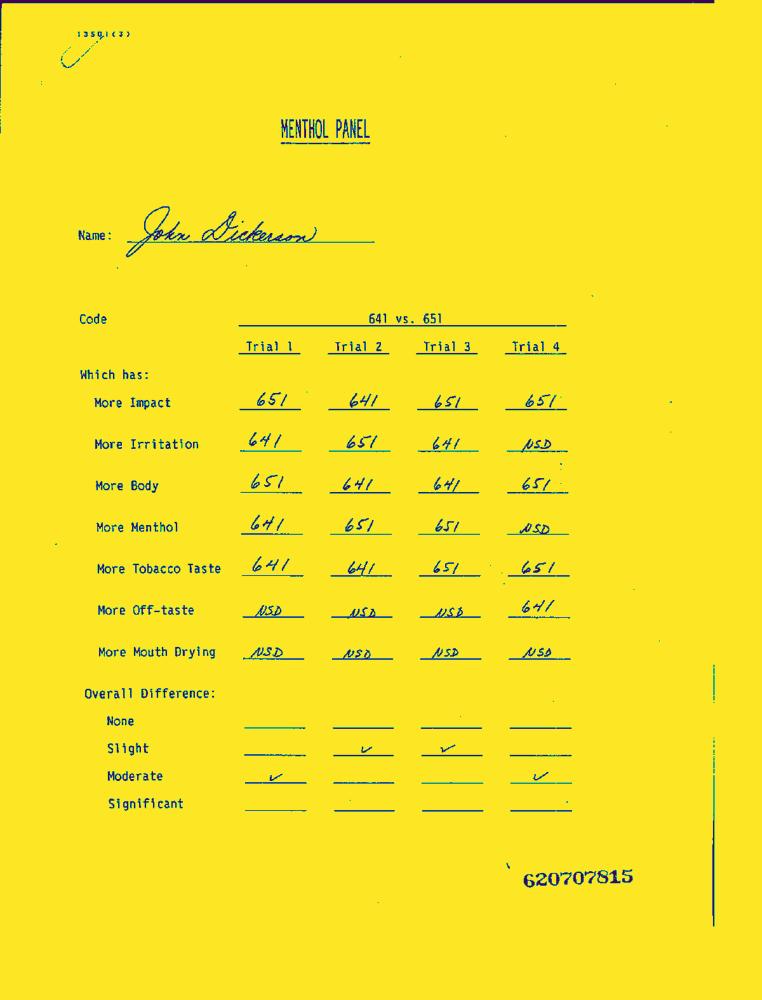 13501(3)
MENTHOL PANEL
Name: John Dickerson
Code 641 vs. 651
Trial 1 Trial 2 Trial 3 Trial 4
Which has:
More Impact 651 641 651 651
More Irritation 641 651 641 NSD
More Body 651 641 641 651
More Menthol 641 651 651 NSD
More Tobacco Taste 641 641 651 651
More Off-taste NSD NSD NSD 641
More Mouth Drying NSD NSD NSD NSD
Overall Difference:
None
Slight ✓ ✓
Moderate ✓ ✓
Significant
620707815